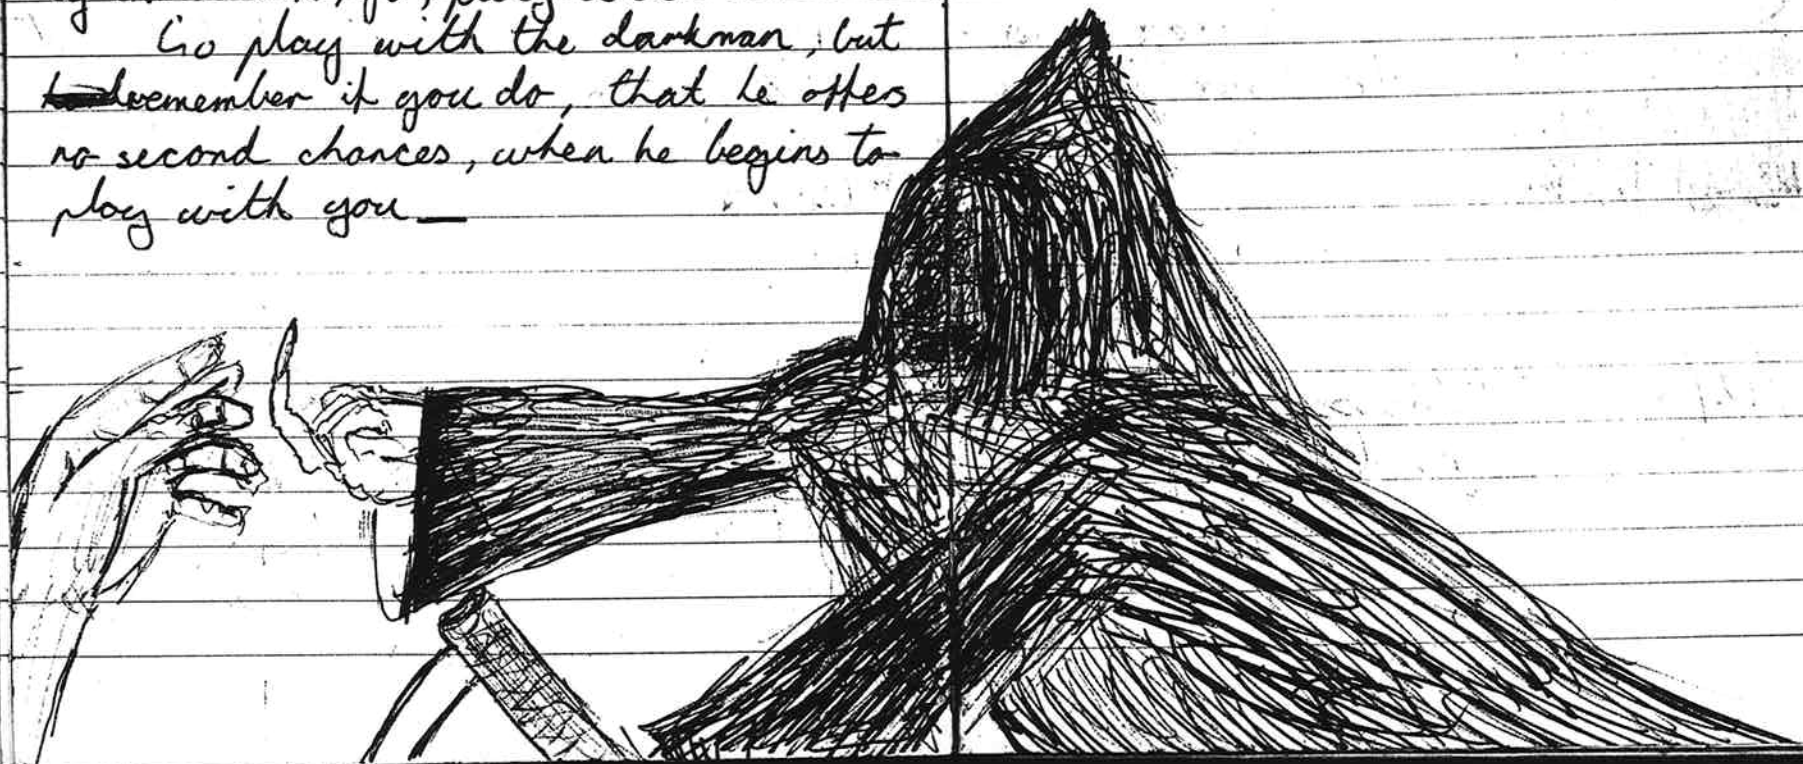 Go play with the darkman, but
remember if you do, that he offers
no second chances, when he begins to
play with you